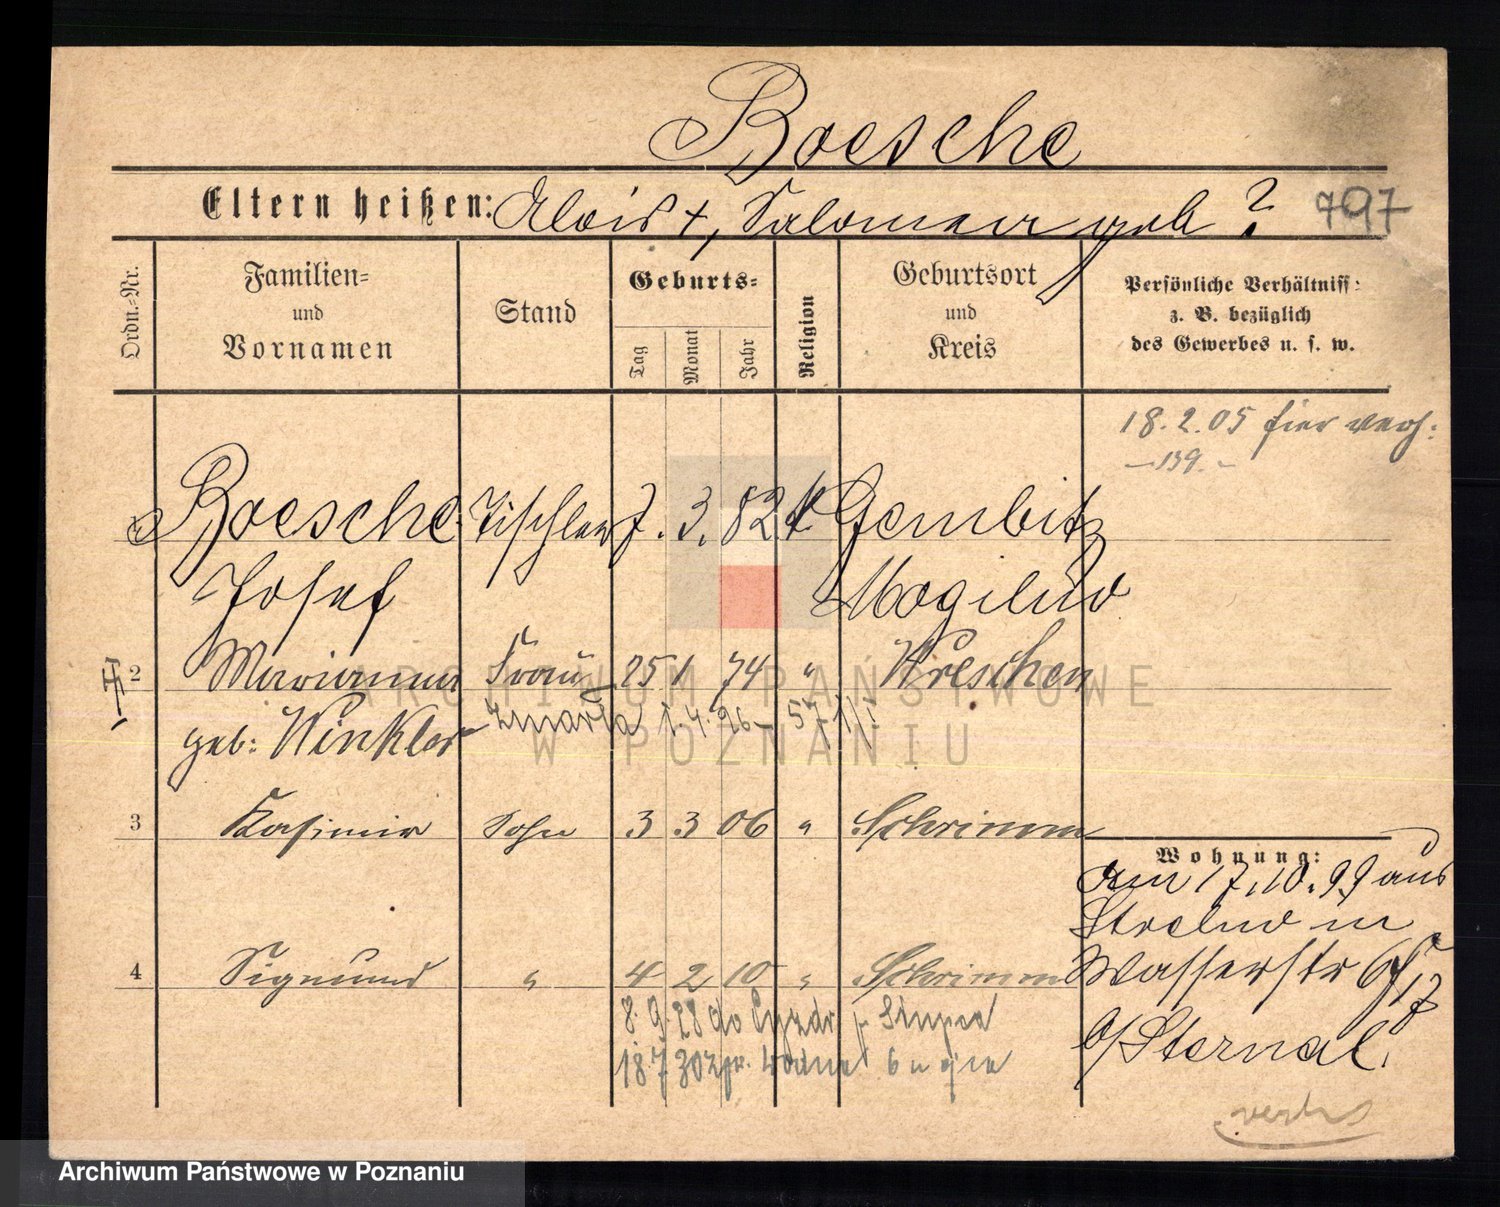 Boesche
Eltern heißen: Alois +, Salomea geb ?
797
Ordn.-Nr.
Familien-
und
Vornamen
Stand
Geburts-
Tag
Monat
Jahr
Religion
Geburtsort
und
Kreis
Persönliche Verhältniss:
z. B. bezüglich
des Gewerbes u. s. w.
18.2.05 hier verh:
139.
Boesche Tischler 7. 3. 82 k Gembitz
Josef Mogilno
2 Marianna Frau 25 1 74 " Wreschen
geb: Winkler zmarła 1.4.26
3 Kasimir Sohn 3 3 06 " Schrimm
Wohnung:
am 17.10.99 aus
Strelno in
4 Sigmund " 4 2 10 " Schrimm
Wasserstr
8.9.28 do
b/Sternal.
18.7.30 z pr. Wodna 6
ARCHIWUM PAŃSTWOWE
W POZNANIU
Archiwum Państwowe w Poznaniu